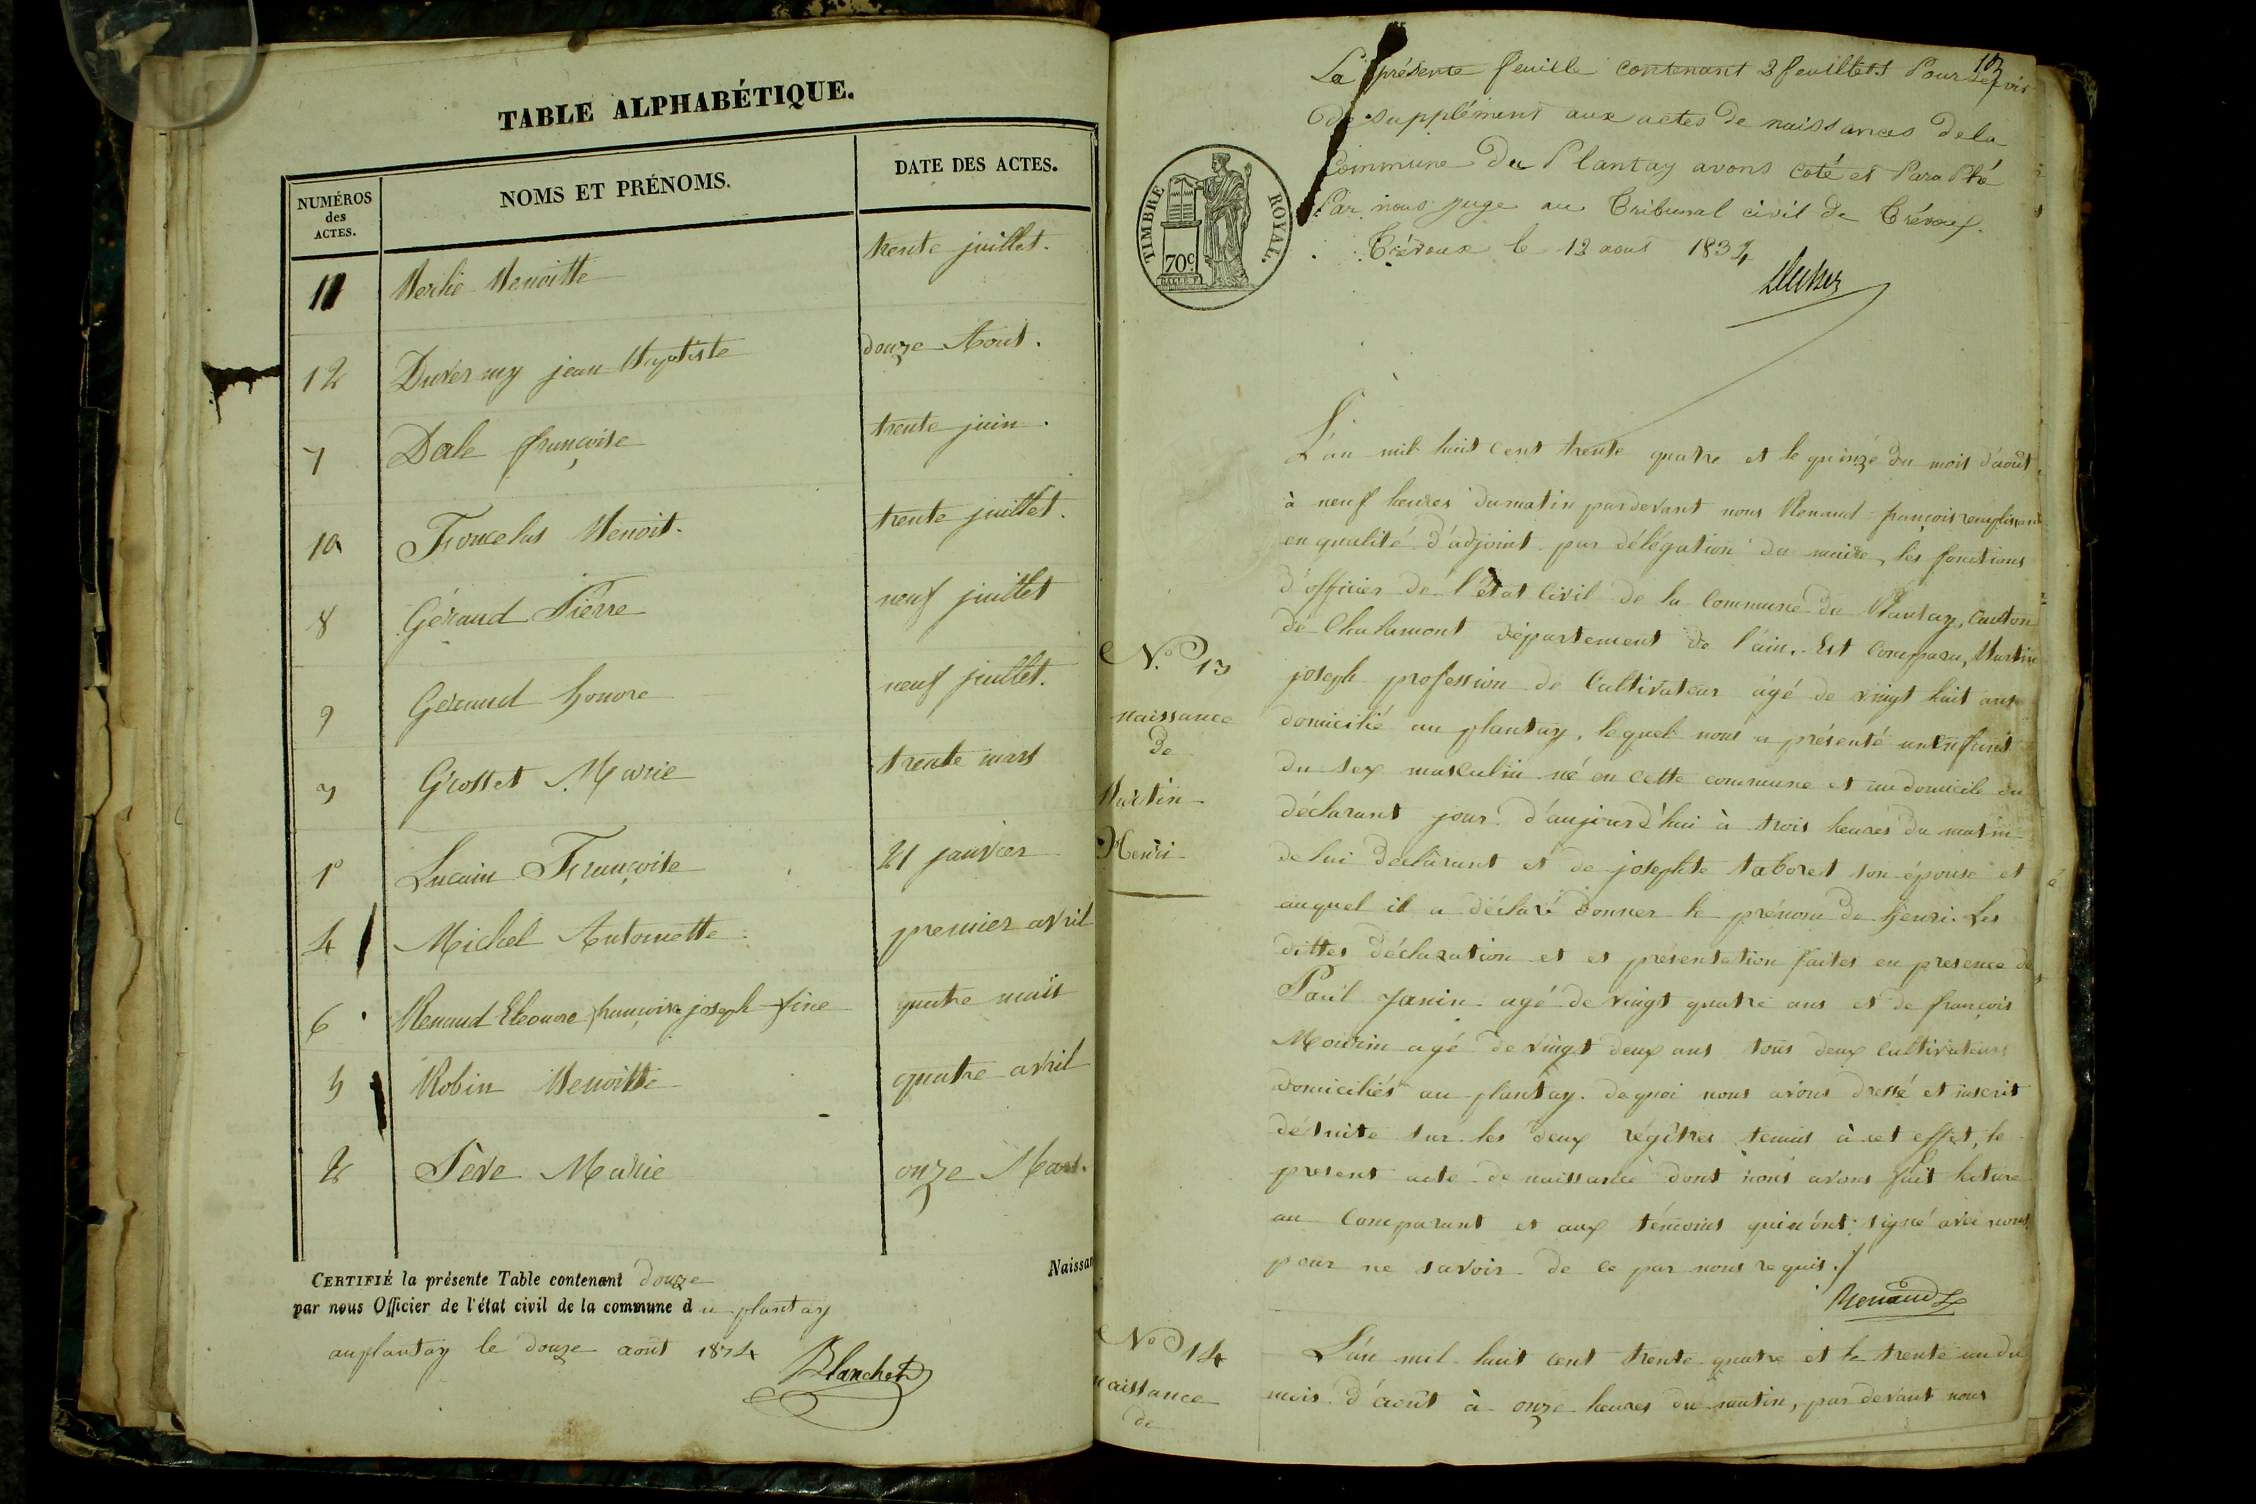 TABLE ALPHABÉTIQUE.
NUMÉROS des ACTES.
NOMS ET PRÉNOMS.
DATE DES ACTES.
11 Benoitte trente juillet.
12 Duvernay jean Baptiste douze Aout.
7 Dale françoise trente juin.
10 Froncelas Benoit. trente juillet.
8 Géraud Pierre neuf juillet
9 Geraud honore neuf juillet.
3 Grosset Marie trente mars
1º Lucain Françoise 21 janvier
4 Michel Antoinette premier avril
6 Renaud Eleonore françoise joseph fine quatre mai
5 Robin Benoitte quatre avril
2 Sève Marie onze Mars.
Naissan
CERTIFIÉ la présente Table contenant douze
par nous Officier de l'état civil de la commune d u plantay
au plantay le douze août 1834
Blanchet
102
La présente feuille contenant 2 feuillets Pour servir
de supplément aux actes de naissances de la
Commune du Plantay avons coté et Paraphé
Par nous juge au Tribunal civil de Trévoux.
Trévoux le 13 aout 1834
TIMBRE ROYAL.
70c
L'an mil huit cent trente quatre et le quinze du mois d'août
à neuf heures du matin pardevant nous Renaud françois remplissant
en qualité d'adjoint par délégation du maire, les fonctions
d'officier de l'état Civil de la Commune du Plantay, Canton
de Chalamont département de l'ain. Est Comparu, Martin
joseph profession de Cultivateur âgé de vingt huit ans
domicilié au plantay, lequel nous a présenté un Enfant
du sex masculin né en cette commune et au domicile du
déclarant jour d'aujourd'hui à trois heures du matin
de lui déclarant et de josephte Taboret son épouse et
auquel il a déclaré donner le prénom de henri. Les
dittes déclaration et et présentation faites en presence de
Paul Janin agé de vingt quatre ans et de françois
Mourin agé de vingt deux ans tous deux Cultivateurs
domiciliés au plantay. de quoi nous avons dressé et inscrit
de suite sur les deux régîtres tenus à cet effet, le
present acte de naissance dont nous avons fait lecture
au Comparant et aux témoins qui n'ont signé avec nous
pour ne savoir de ce par nous requis./
Renaud
Nº 13
naissance
de
Martin
Henri
Nº 14
naissance
de
L'an mil huit cent trente quatre et le trente un du
mois d'août à onze heures du matin, par devant nous